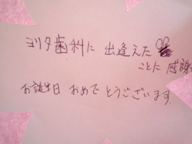 ヨリタ歯科に 出逢えた
ことに 感謝
お誕生日 おめでとうございます